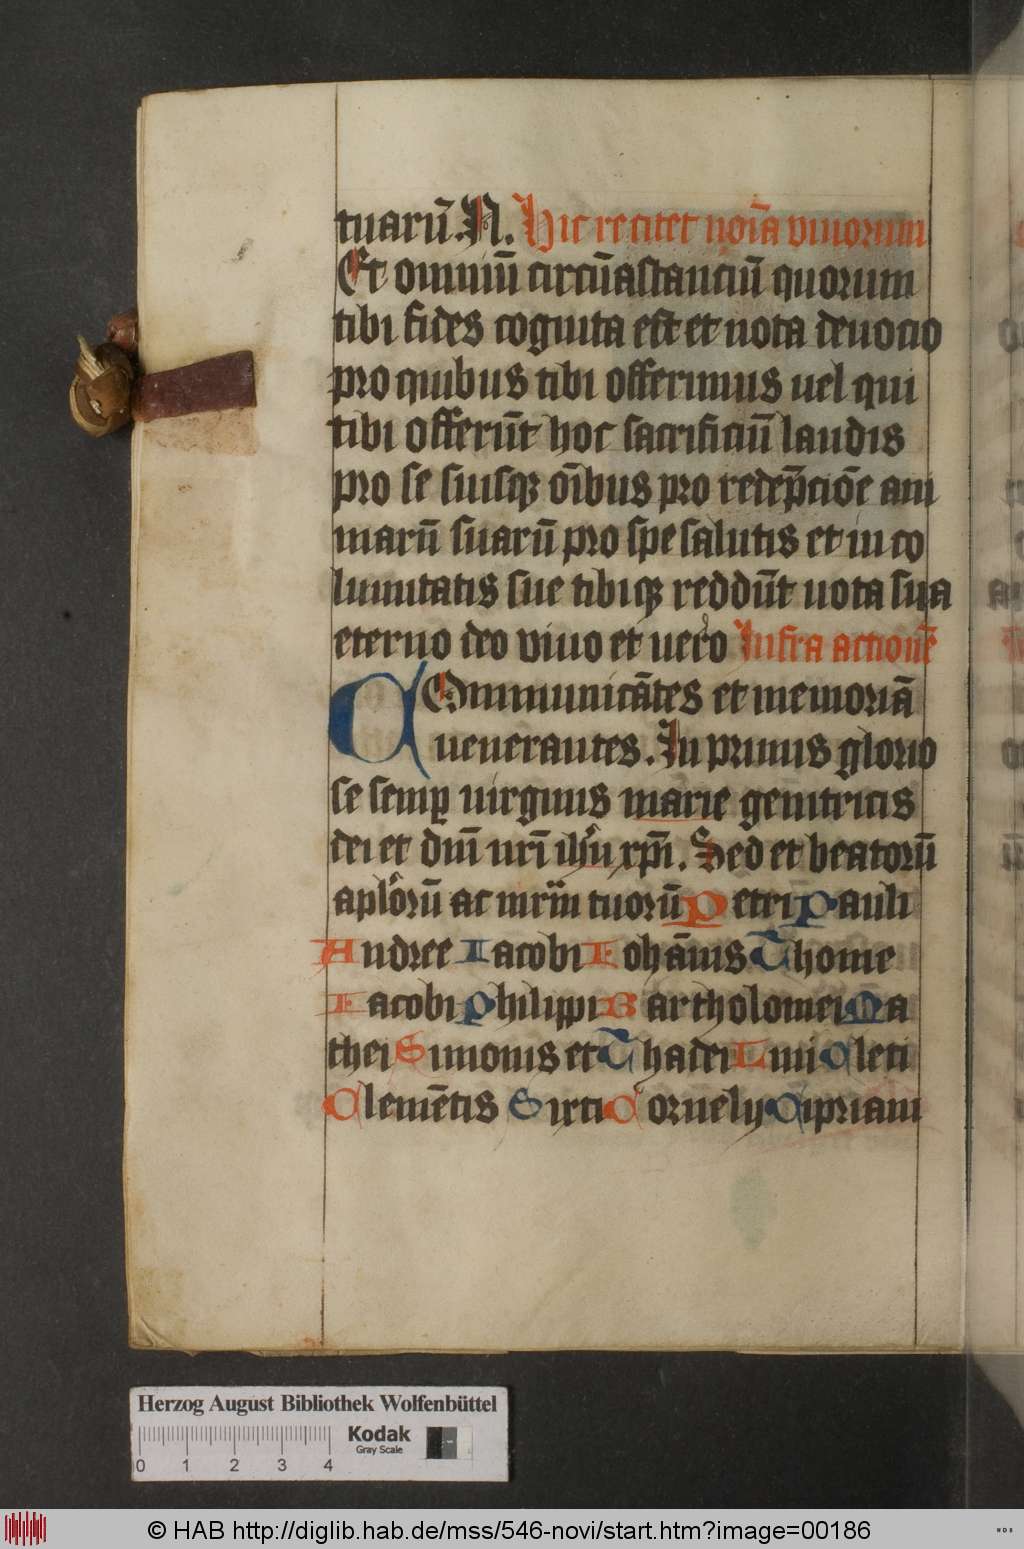 tuarū. N. Hic recitet noīa viuorum
Et omniū circūastanciū quorum
tibi fides cognita est et nota deuocio
pro quibus tibi offerimus uel qui
tibi offerūt hoc sacrificiū laudis
pro se suisqꝫ oībus pro redēpciōe ani
marū suarū pro spe salutis et in co
lumitatis sue tibiqꝫ reddūt uota sua
eterno deo viuo et uero Infra actionē
COmmunicātes et memoriā
uenerantes. In primis glorio
se semꝑ uirginis marie genitricis
dei et dnī nrī ihu xpī. Sed et beatorū
aplorū ac mrīm tuorū Petri Pauli
Andree Iacobi Iohānis Thome
Iacobi Philippi Bartholomei Ma
thei Simonis et Thadei Lini Cleti
Clemētis Sixti Cornelij Cipriani
Herzog August Bibliothek Wolfenbüttel
Kodak
Gray Scale
0 1 2 3 4
© HAB http://diglib.hab.de/mss/546-novi/start.htm?image=00186